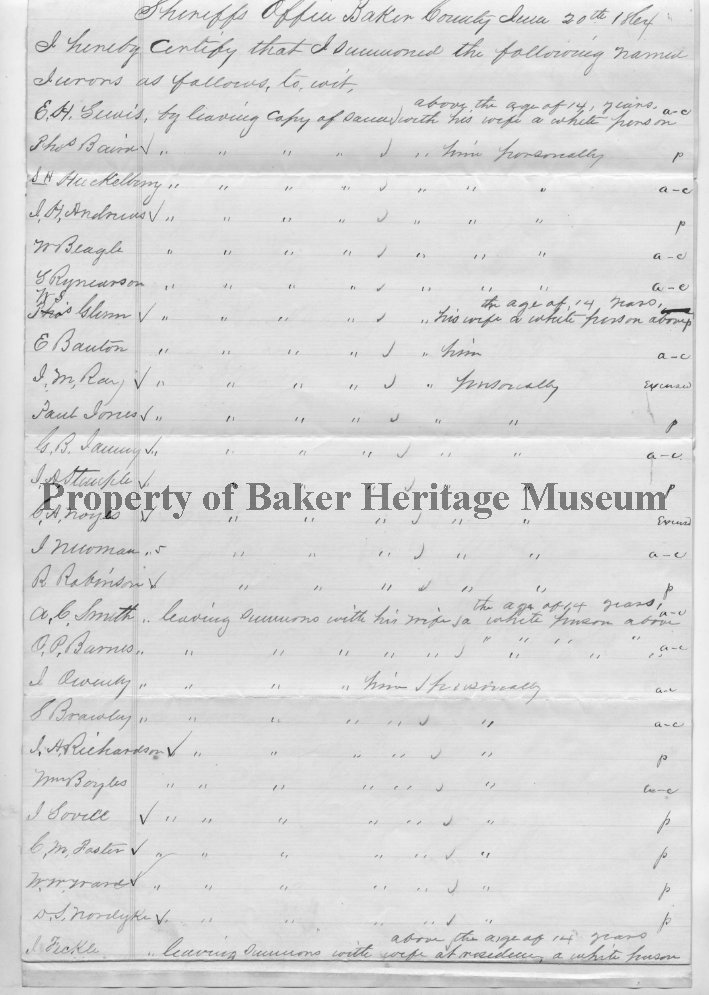 Sheriffs Office Baker County June 20th 1864
I hereby certify that I summoned the following named
Jurors as follows, to, wit,
above the age of 14, years,
E. H. Lewis, by leaving copy of same with his wife a white person a-c
Thos Baird ✓ " " " " " him personally p
S H Huckelberry " " " " " " " a-c
J. H. Andrews ✓ " " " " " " " p
W Beagle " " " " " " " a-c
G Rynearson " " " " " " " a-c
W S the age of, 14 years,
Thos Glenn ✓ " " " " " his wife a white person above p
E Banton " " " " " him a-c
J. M, Ray ✓ " " " " " personally Excused
Paul Jones ✓ " " " " " " p
G. B. ✓ " " " " " " a-c
J. A Stemple ✓ " " " " " " p
Property of Baker Heritage Museum
C. A. Noyes ✓ " " " " " " Excused
J Newman " " " " " " a-c
R Robinson ✓ " " " " " p
the age of 14 years,
A, C, Smith " leaving summons with his wife a white person above a-c
O, P, Barnes " " " " " " " " " " a-c
J " " " " him personally a-c
S Brawley " " " " " " a-c
J, A Richardson ✓ " " " " " p
Wm Boyles " " " " " " a-c
J Lovell ✓ " " " " " " p
C, M, Foster ✓ " " " " " " p
W. W. Ward ✓ " " " " " " p
D S, Nordyke ✓ " " " " " p
above the age of 14 years
J Fickle " leaving summons with wife at residence, a white person